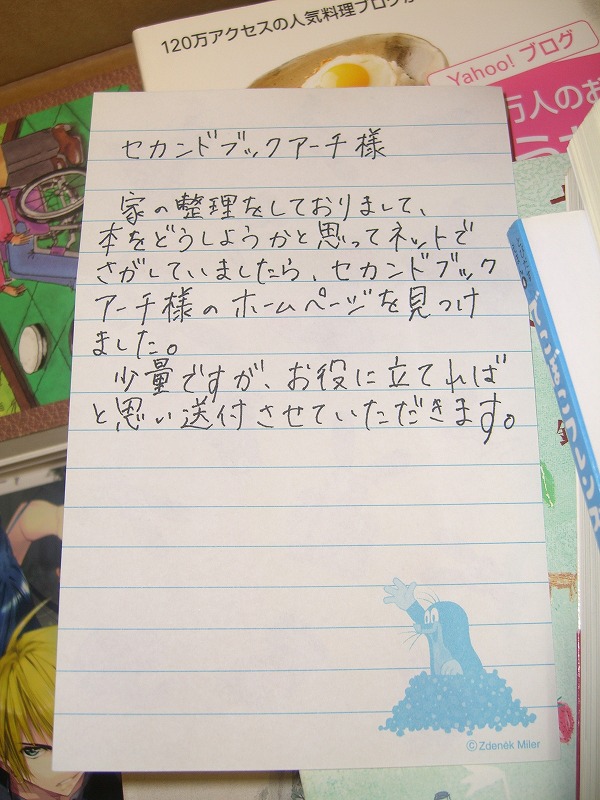 120万アクセスの人気料理ブログが
Yahoo! ブログ
万人のお
セカンドブックアーチ様
家の整理をしておりまして、
本をどうしようかと思ってネットで
さがしていましたら、セカンドブック
アーチ様のホームページを見つけ
ました。
少量ですが、お役に立てれば
と思い送付させていただきます。
©Zdeněk Miler